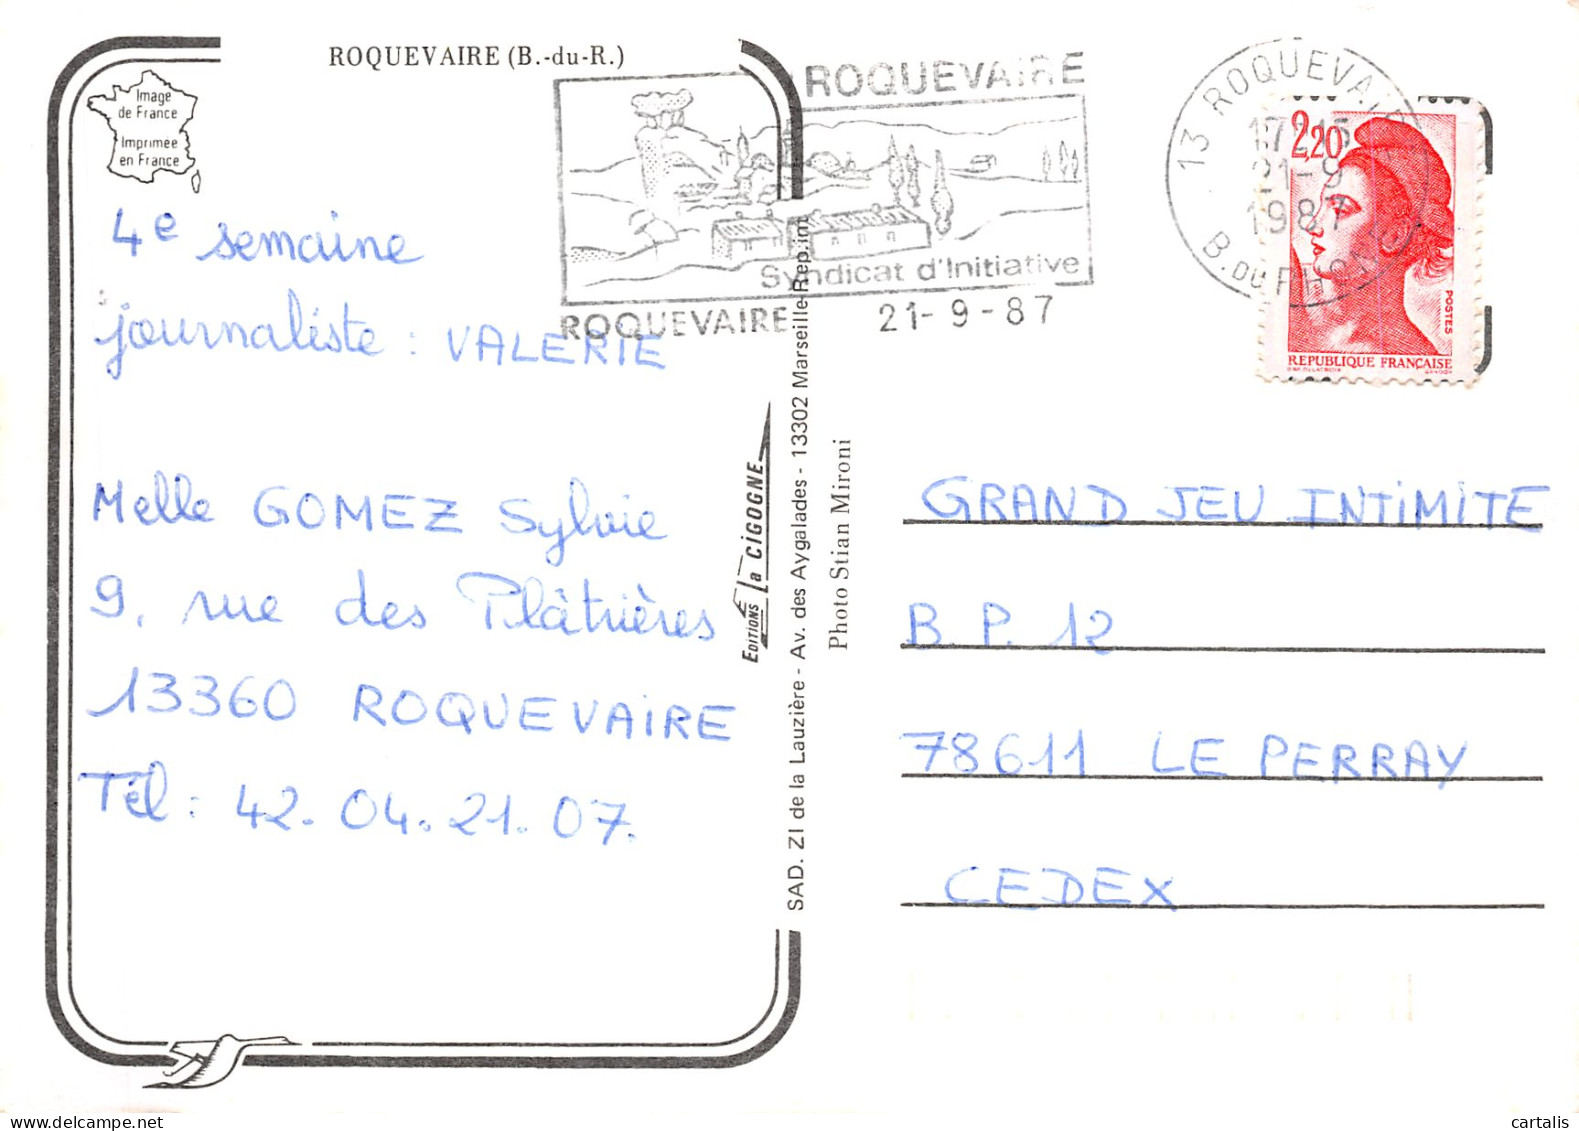 ROQUEVAIRE (B.-du-R.)
Image
de France
Imprimée
en France
4e semaine
journaliste : VALERIE
Melle GOMEZ Sylvie
9, rue des Plâtrières
13360 ROQUEVAIRE
Tél : 42.04.21.07.
ROQUEVAIRE
Syndicat d'Initiative
ROQUEVAIRE 21-9-87
13 ROQUEVAIRE
17H15
21-9
1987
B. DU RHONE
2,20
POSTES
REPUBLIQUE FRANÇAISE
EDITIONS La CIGOGNE
SAD. ZI de la Lauzière - Av. des Aygalades - 13302 Marseille Rep.int
Photo Stian Mironi
GRAND JEU INTIMITE
B.P. 12
78611 LE PERRAY
CEDEX
cartalis